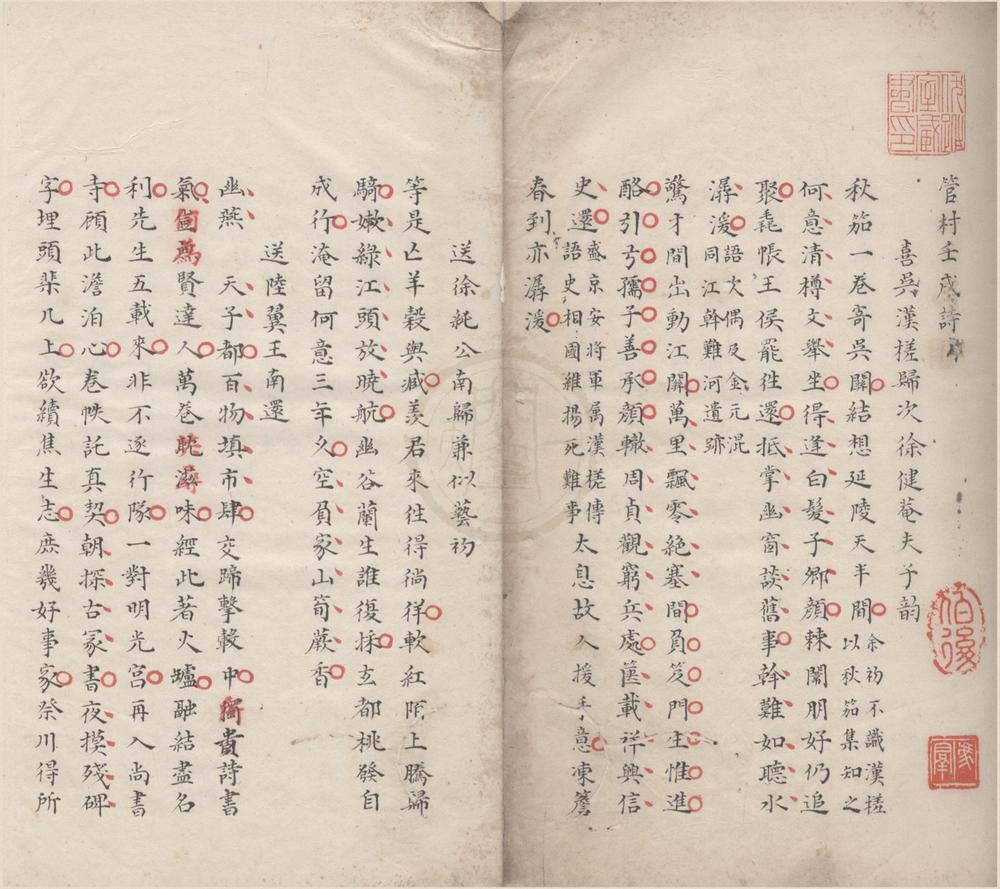 管村壬戌詩
喜吳漢槎歸次徐健菴夫子韻
秋笳一卷寄吳關結想延陵天半間余初不識漢槎以秋笳集知之
何意清樽文舉坐得逢白髮子卿顏棘闈朋好仍追
聚毳帳王侯罷往還抵掌幽窗談舊事幹難如聽水
潺湲語次偶及金元混同江幹難河遺跡
驚才間出動江關萬里飄零絕塞間負笈門生惟進
酪引弓孺子善承顏轍周貞觀窮兵處筐載祥興信
史還盛京安將軍属漢槎傳語史相國維揚死難事太息故人援手意凍簷
春到亦潺湲
送徐純公南歸兼似藝初
等是亡羊穀與臧羨君來往得徜徉軟紅陌上騰歸
騎嫩綠江頭放曉航幽谷蘭生誰復採玄都桃發自
成行淹留何意三年久空負家山筍蕨香
送陸翼王南還
幽燕 天子都百物填市肆交蹄擊轂中獨貴詩書
氣僃為賢達人萬卷耽濔味經此著火爐融結盡名
利先生五載來非不逐行隊一對明光宮再入尚書
寺顧此澹泊心卷帙託真契朝探古冢書夜摸殘碑
字埋頭棐几上欲續焦生志庶幾好事家祭川得所